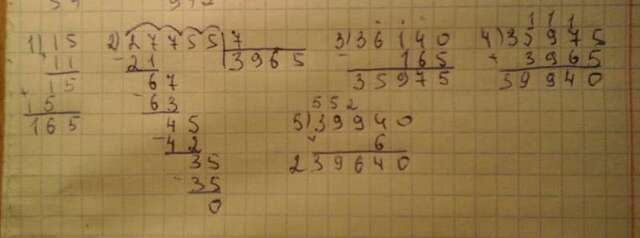 1) 15
11
15
15
165
2) 27755 7
-21 3965
67
-63
45
-42
35
-35
0
3) 36140
- 165
35975
111
4) 35975
+ 3965
39940
552
5) 39940
6
239640